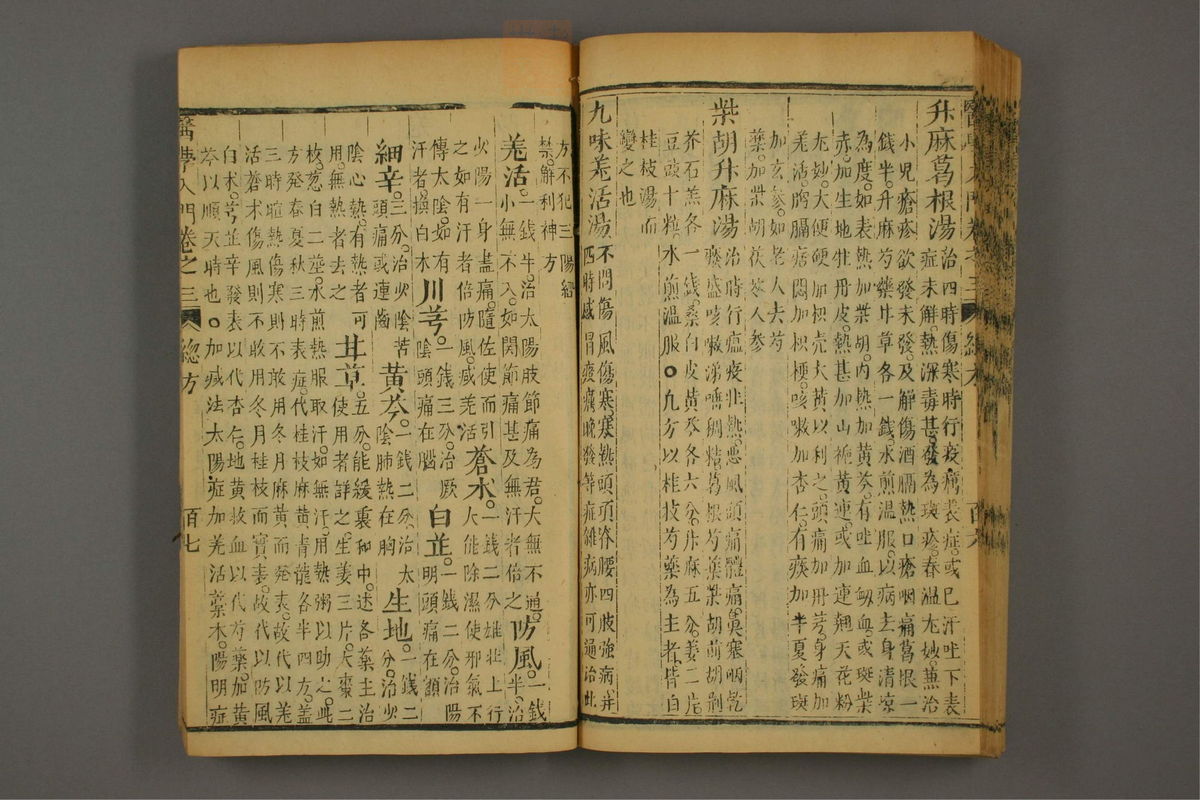 升麻葛根湯治四時傷寒時行疫癘表症或已汗吐下表
症未解熱深毒甚發為斑疹春溫尤妙兼治
小児瘡疹欲發未發及解傷酒膈熱口瘡咽痛葛根一
錢半升麻芍藥甘草各一錢水煎溫服以病去身清凉
為度如表熱加柴胡內熱加黃芩有吐血衂血或斑紫
赤加生地牡丹皮熱甚加山梔黃連或加連翹天花粉
尤妙大便硬加枳壳大黃以利之頭痛加川芎身痛加
羗活胷膈痞悶加枳梗咳嗽加杏仁有痰加半夏發斑
加玄參如老人去芍
藥加柴胡茯苓人參
柴胡升麻湯治時行瘟疫壯熱惡風頭痛體痛鼻塞咽乾
痰盛咳嗽涕唾稠粘葛根芍藥柴胡前胡荆
芥石羔各一錢桑白皮黃芩各六分升麻五分姜三片
豆豉十粒水煎溫服○九方以桂枝芍藥為主者皆自
桂枝湯而
變之也
九味羗活湯不問傷風傷寒寒熱頭項脊腰四肢強病并
四時感冒痰癘晚發等症雜病亦可通治此
方不犯三陽經
禁解利神方
羗活一錢半治太陽肢節痛為君大無不通
小無不入如関節痛甚及無汗者倍之防風一錢半治
火陽一身盡痛隨佐使而引
之如有汗者倍防風减羗活蒼术一錢二分雄壯上行
大能除濕使邪氣不
傳太陰如有
汗者換白术川芎一錢三分治厥
陰頭痛在腦白芷一錢二分治陽
明頭痛在額
細辛三分治火陰苦
頭痛或連齒黃芩一錢二分治太
陰肺熱在胸生地一錢二
分治火
陰心熱有熱者可
用無熱者去之甘草五分能緩裏和中述各藥主治
使用者詳之生姜三片大棗二
枚葱白二莖水煎熱服取汗如無汗用熱粥以助之此
方発春夏秋三時表症代桂枝麻黃青龍各半四方盖
三時暄熱傷寒則不敢用冬月麻黃而発表故代以羗
活蒼术傷風則不敢用冬月桂枝而實表故代以防風
白术芎芷辛發表以代杏仁地黃救血以代芍藥加黃
芩以順天時也○加减法太陽症加羗活藁本陽明症
醫學入門卷之三 總方 百七